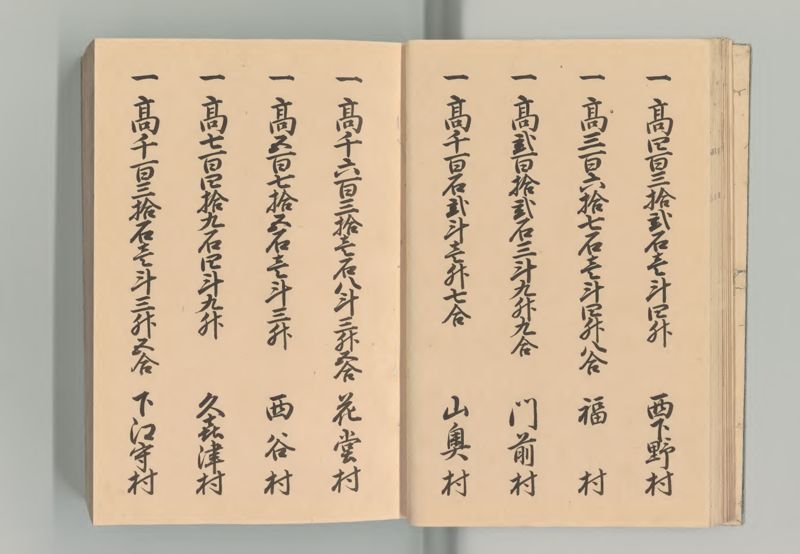 一 高四百三拾弐石壱斗四升 西下野村
一 高三百六拾七石壱斗四升八合 福村
一 高弐百拾弐石三斗九升九合 門前村
一 高千百石弐斗壱升七合 山奥村
一 高千六百三拾壱石八斗三升五合 花堂村
一 高五百七拾五石壱斗三升 西谷村
一 高七百四拾九石四斗九升 久喜津村
一 高千百三拾石壱斗三升五合 下江守村